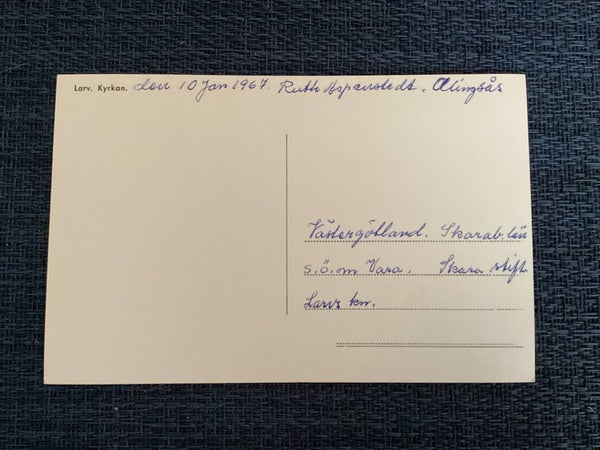 Larv. Kyrkan. den 10 Jan 1967. Ruth Aspenstedt. Alingsås
Västergötland. Skarab. län
s.ö.m Vara. Skara stift
Larvs kn.